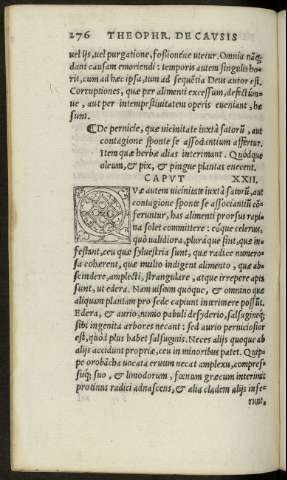 276 THEOPHR. DE CAVSIS
uel ijs, uel purgatione, fossioneue utetur. Omnia nãq;
dant causam emoriendi: temporis autem singulis ho-
ris, cum ad hæc ipsa, tum ad sequẽtia Deus autor est.
Corruptiones, quæ per alimenti excessum, defectum-
ue, aut per intempestiuitatem operis eueniant, hæ
sunt.
¶De pernicie, quæ uicinitate iuxtà satorũ, aut
contagione sponte se associantium affertur.
Item quæ herbæ alias interimant. Quòdque
oleum, & pix, & pingue plantas enecent.
CAPVT XXI.
QVæ autem uicinitate iuxtà satorũ, aut
contagione sponte se associantiũ cõ-
feruntur, has alimenti prorsus rapi-
na solet committere: eóque celerius,
quò ualidiora, pluráque sint, quæ in-
festent, ceu quæ syluestria sunt, quæ radice numero-
sa cohærent, quæ multo indigent alimento, quæ ab-
scindere, amplecti, strangulare, atque irrepere apta
sunt, ut edera. Nam uiscum quóque, & omnino quæ
aliquam plantam pro sede capiunt interimere possũt.
Edera, & aurio, nimio pabuli desyderio, salsugineq;
sibi ingenita arbores necant: sed aurio perniciosior
est, quòd plus habet salsuginis. Neces alijs quoque ab
alijs accidunt propriæ, ceu in minoribus patet. Quip-
pe orobãcha uocata eruum necat amplexu, compres-
suq́; suo, & limodorum, fœnum græcum interimit
protinus radici adnascens, & alia cladem alijs infe-
runt.